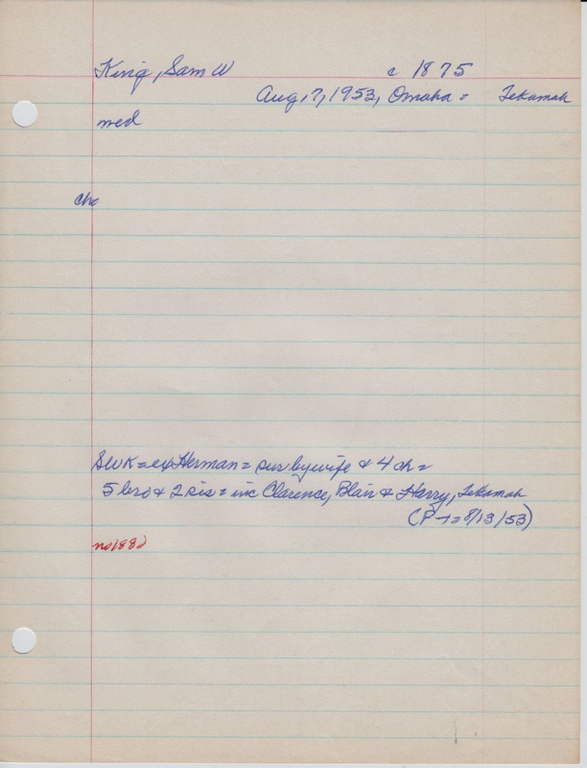 King, Sam W c 1875
Aug, 7, 1953, Omaha = Tekamah
med
ch=
SWK = ex Herman = sur by wife & 4 ch =
5 bro & 2 sis = inc Clarence, Blair & Harry, Tekamah
(P-t = 8/13/53)
no 1882